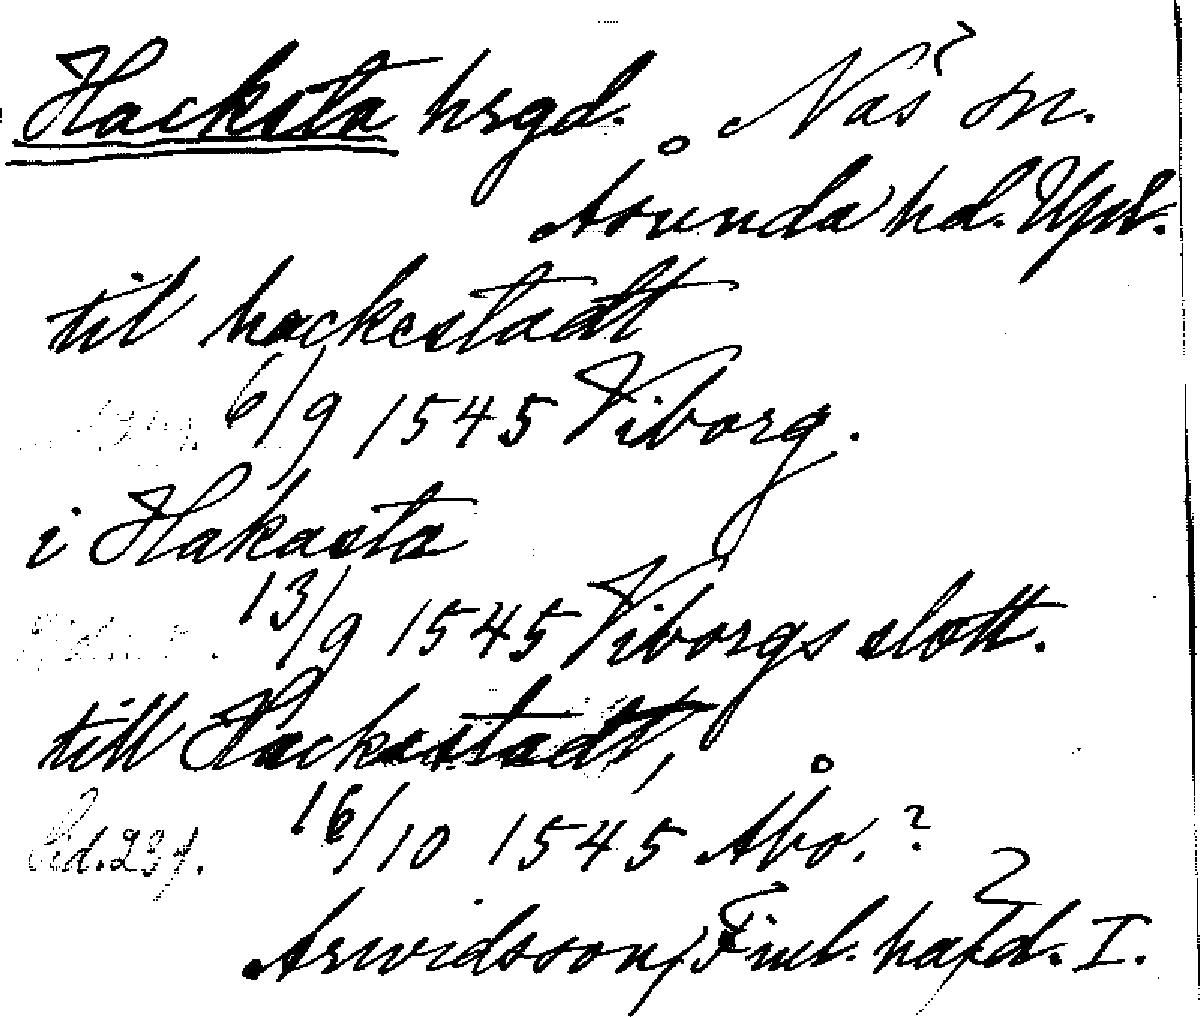 Hacksta hrgd. Näs sn.
Åsunda hd. Upl.
til hackestadt
6/9 1545 Viborg.
i Hakasta
13/9 1545 Viborgs slott.
till Hackestadt,
16/10 1545 Åbo.?
Sid. 231.
Arwidsson, Finl. häfd. I.